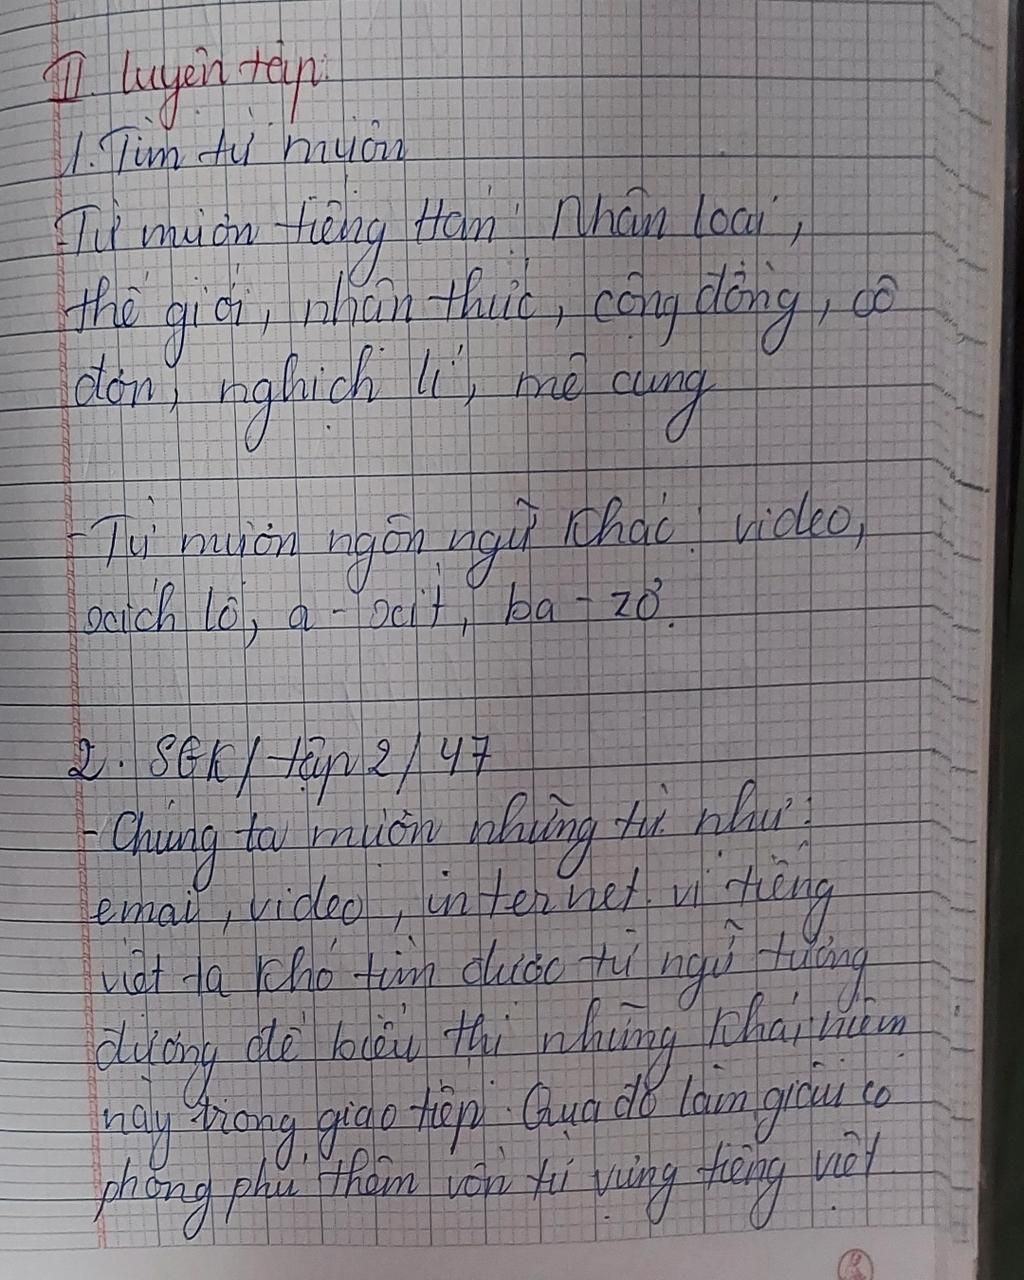 II. luyện tập:
1. Tìm từ mượn
- Từ mượn tiếng Hán: Nhân loại,
thế giới, nhận thức, cộng đồng, cô
đơn, nghịch lí, mê cung
- Từ mượn ngôn ngữ khác: video,
xích lô, a - xit, ba - zơ.
2. SGK/ tập 2/ 47
- Chúng ta mượn những từ như:
emai, video, internet. vì tiếng
việt ta khó tìm được từ ngữ tương
đương để biểu thị những khái niệm
này trong giao tiếp. Qua đó làm giàu có
phong phú thêm vốn từ vựng tiếng việt